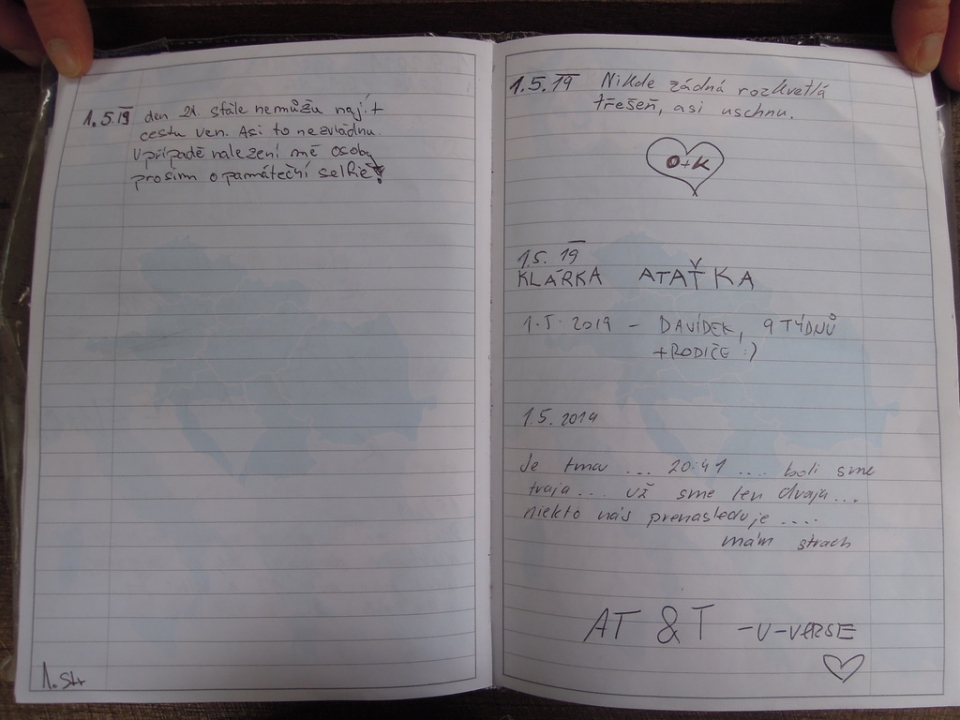 1.5.19 den 21. stále nemůžu najít
cestu ven. Asi to nezvládnu.
V případě nalezení mé osoby
prosim o památeční selfie!
1. str
1.5.19 Nikde žádná rozkvetlá
třešeň, asi uschnu.
O+K
1.5.19
KLÁRKA ATAŤKA
1.5.2019 - DAVÍDEK, 9 TÝDNŮ
+RODIČE :)
1.5.2019
Je tma ... 20:41 .... boli sme
traja... už sme len dvaja...
niekto nás prenasleduje ....
mám strach
AT & T -U-VERSE